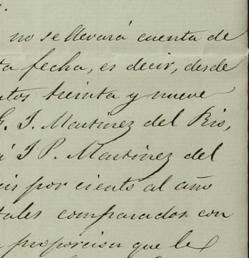 no se llevará cuenta de
ta fecha, es decir, desde
ntos treinta y nueve
G. J. Martinez del Rio,
J P. Martinez del
eis por ciento al año
tales comparados con
proporcion que le